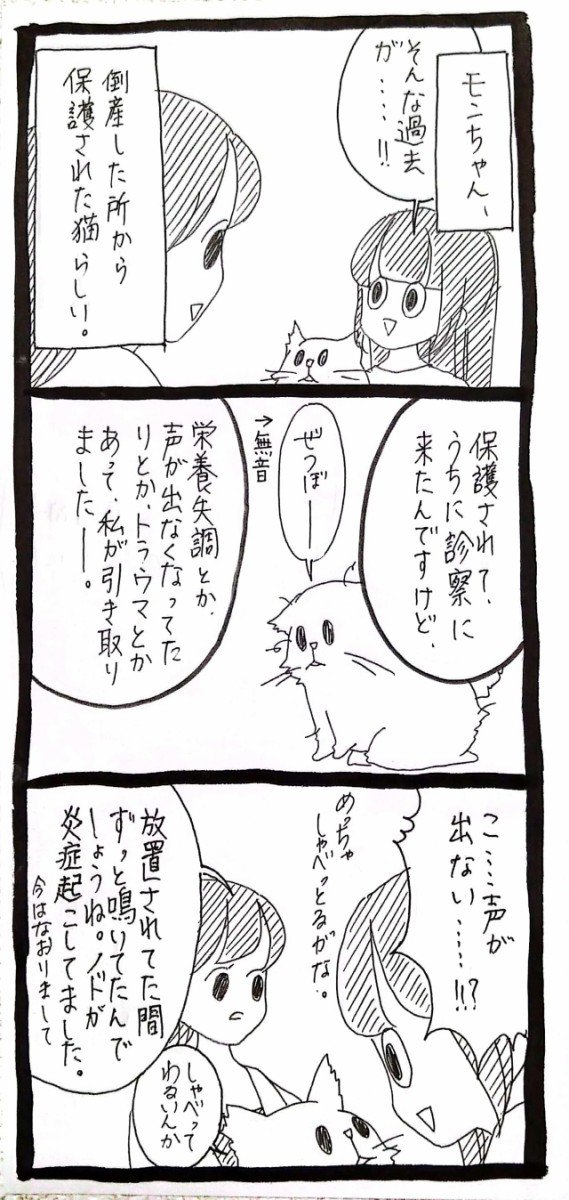 モンちゃん、
そんな過去
が・・・・!!
倒産した所から
保護された猫らしい。
保護されて、
うちに診察に
来たんですけど、
ぜつぼーー
→無音
栄養失調とか、
声が出なくなってた
りとか、トラウマとか
あって、私が引き取り
ましたー。
こ・・・・声が
出ない・・・・・!!?
めっちゃ
しゃべっとるがな。
放置されてた間
ずっと鳴いてたんで
しょうね。ノドが
炎症起こしてました。
今はなおりまして
しゃべって
わるいんか